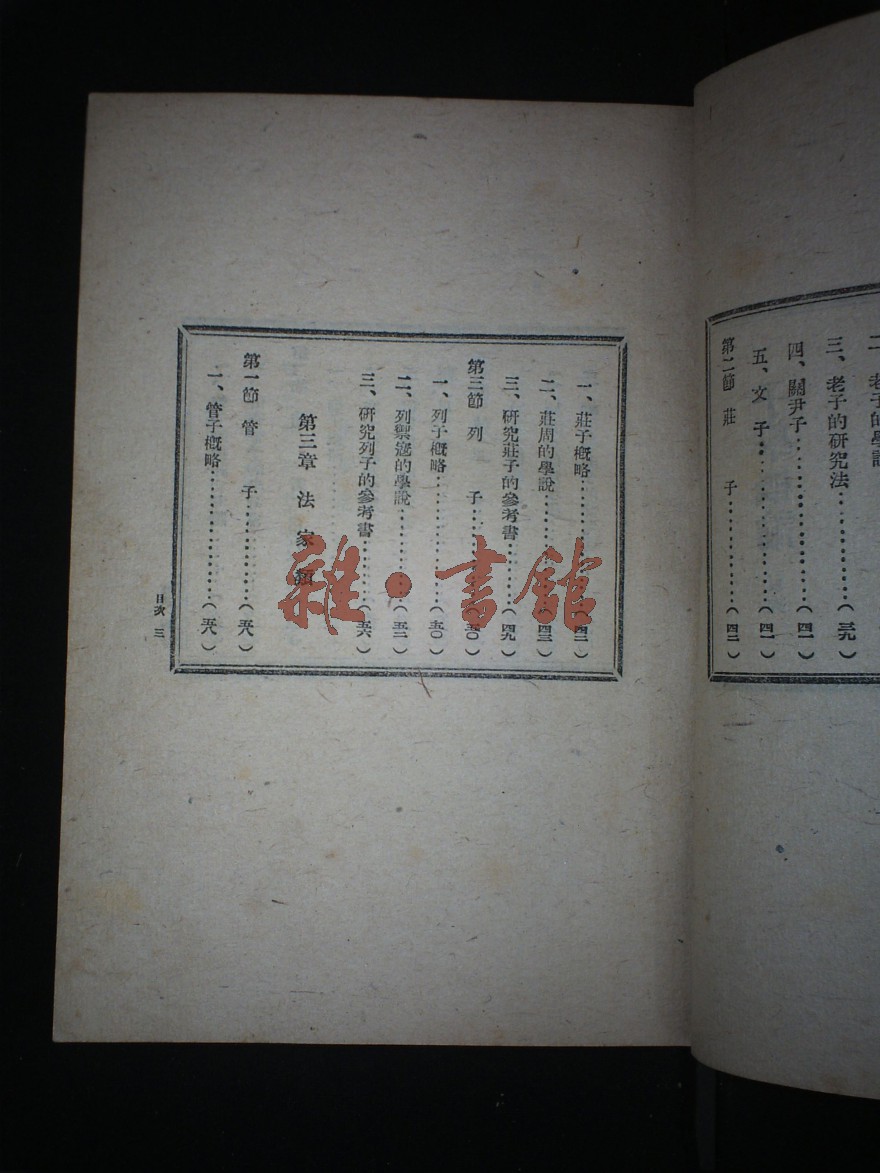 二、老子的學說
三、老子的研究法………(三九)
四、關尹子………(四一)
五、文子………(四一)
第二節 莊 子………(四二)
一、莊子概略………(四二)
二、莊周的學說………(四三)
三、研究莊子的參考書………(四九)
第三節 列 子………(五〇)
一、列子概略………(五〇)
二、列禦寇的學說………(五二)
三、研究列子的參考書………(五六)
第三章 法家類
第一節 管 子………(五八)
一、管子概略………(五八)
目次 三
雜·書館